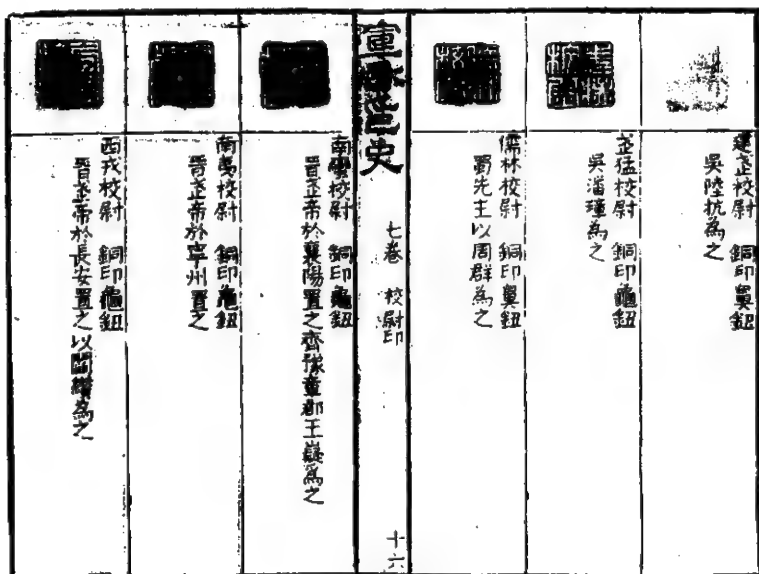 建武校尉　銅印鼻鈕
吳陸抗為之
武猛校尉　銅印龜鈕
吳潘璋為之
儒林校尉　銅印鼻鈕
蜀先主以周群為之
宣和印史　七卷　校尉印　十六
南蠻校尉　銅印龜鈕
晋武帝於襄陽置之齊豫章郡王嶷為之
南夷校尉　銅印龜鈕
晋武帝於寧州置之
西戎校尉　銅印龜鈕
晋武帝於長安置之以閻纘為之